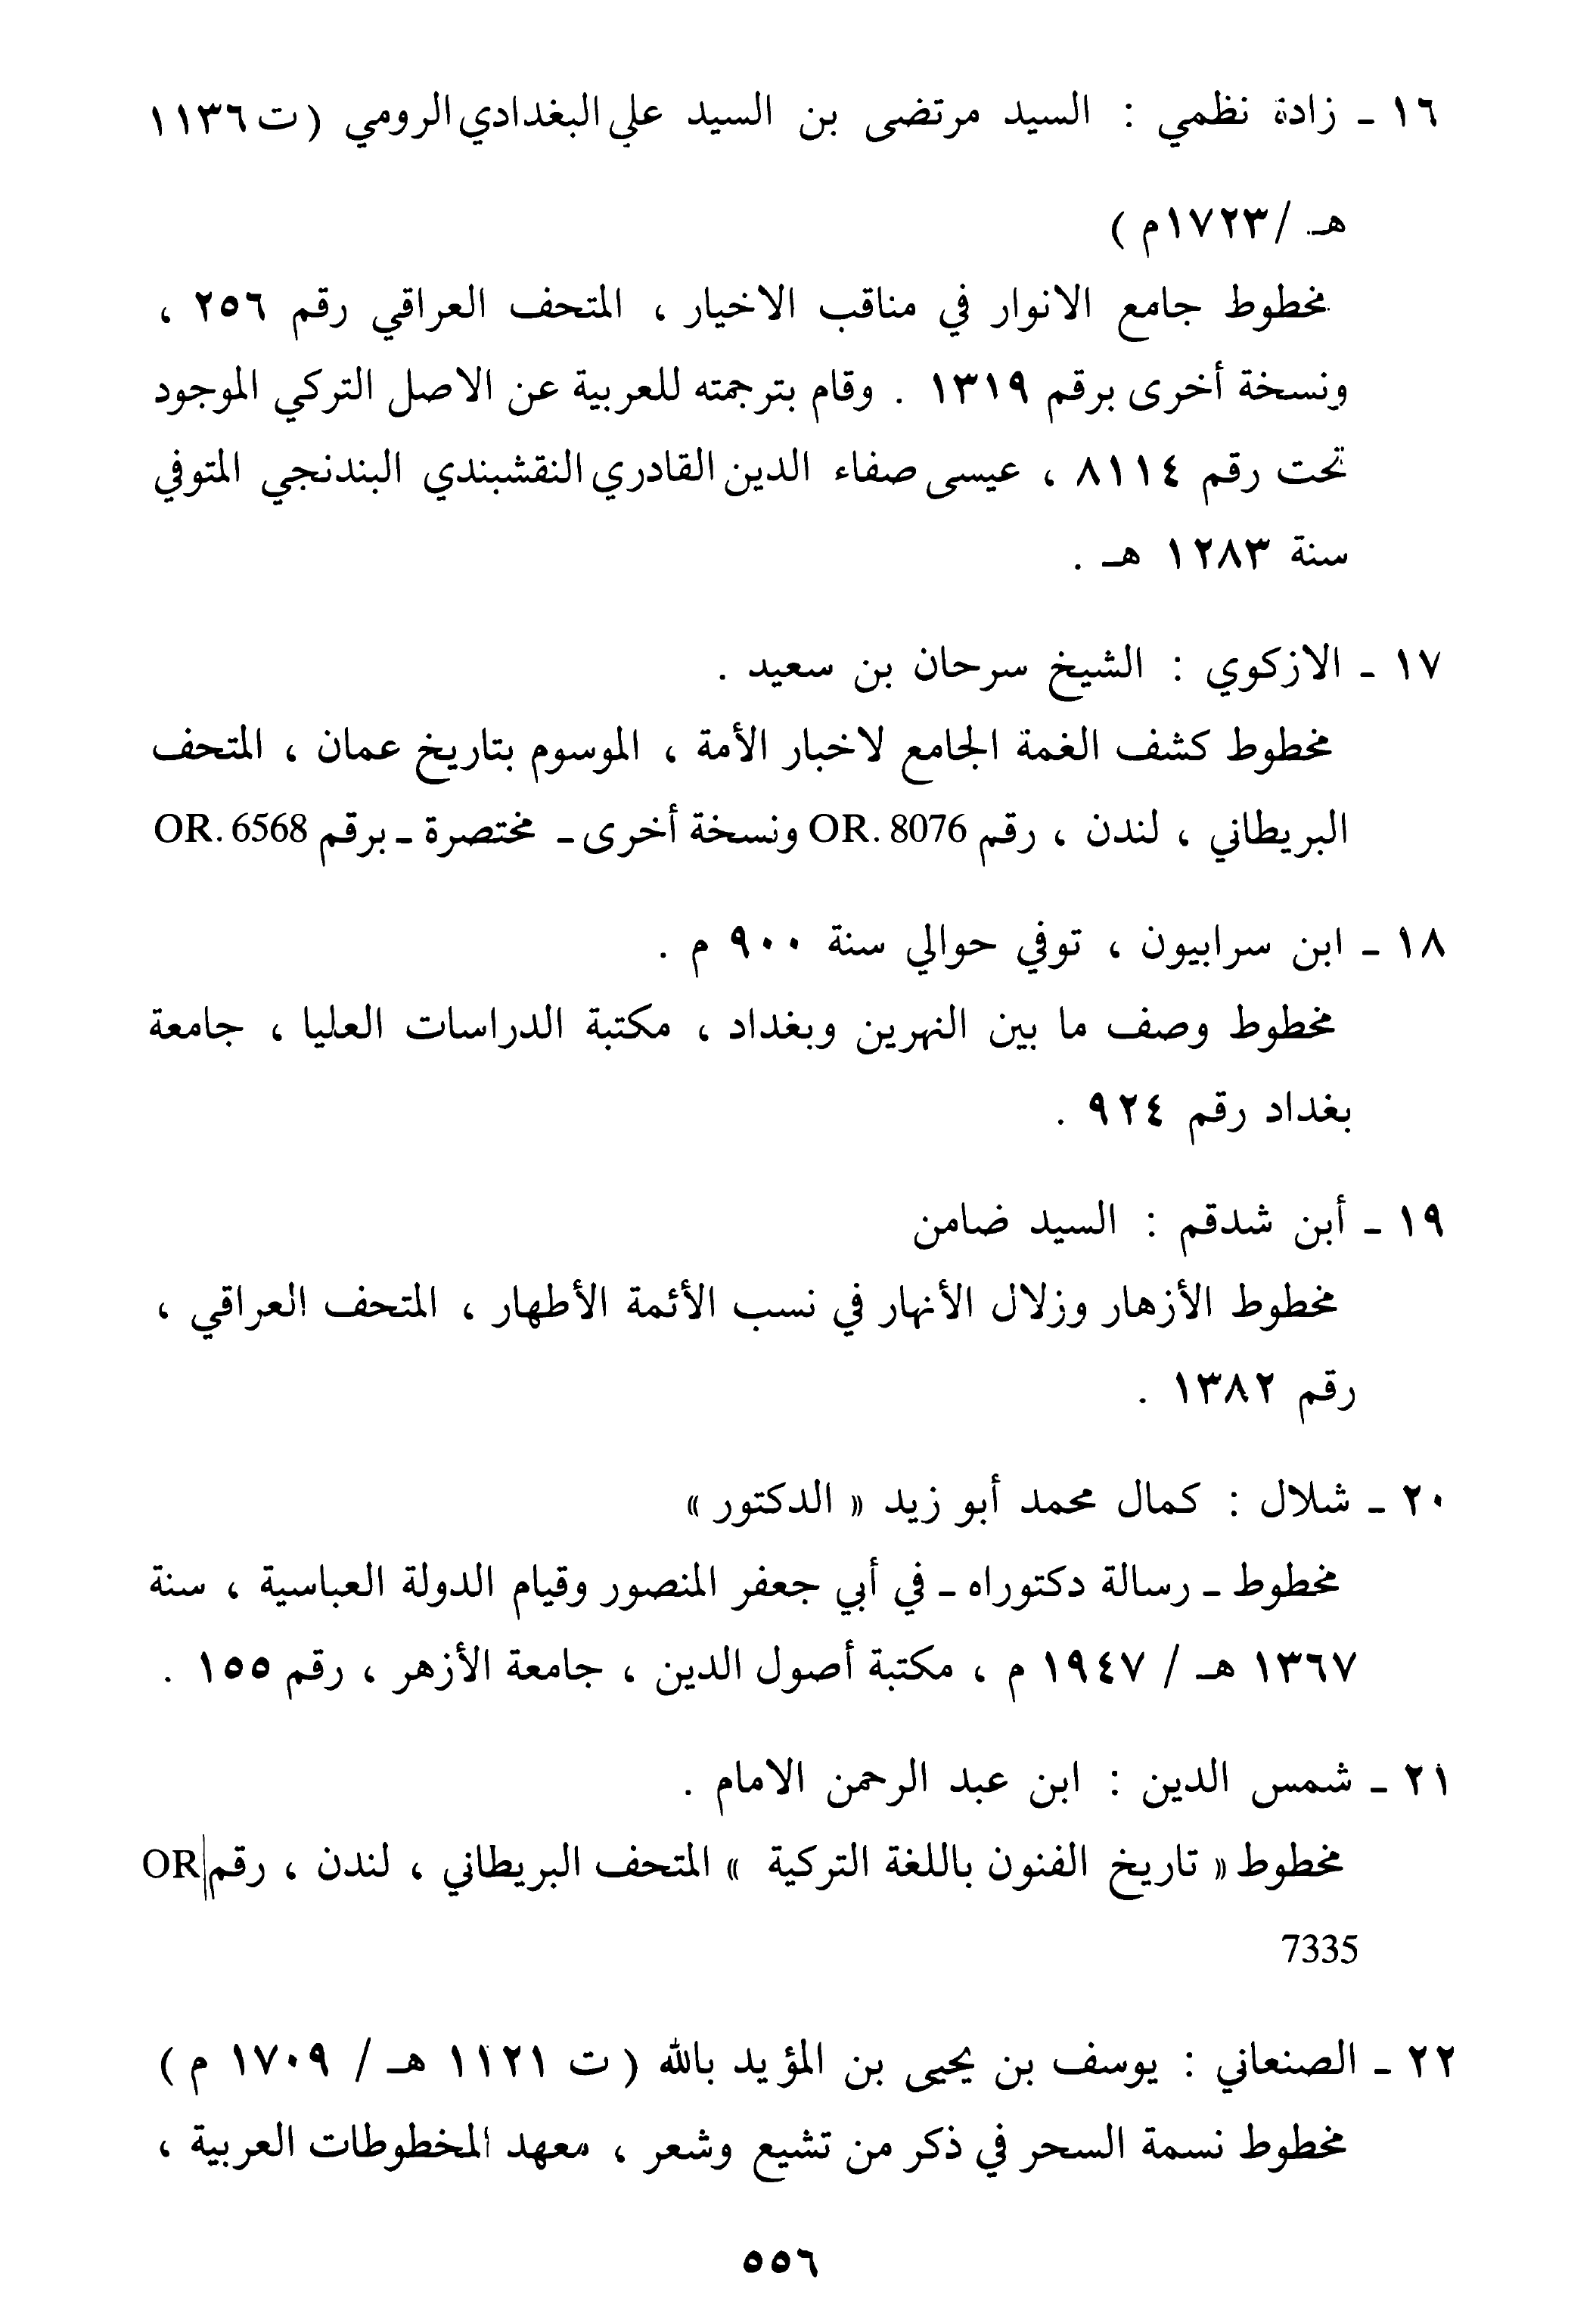 ١٦ ـ زادة نظمي : السيد مرتضى بن السيد علي البغدادي الرومي (ت ١١٣٦
هـ /١٧٢٣م )
مخطوط جامع الانوار في مناقب الاخيار ، المتحف العراقي رقم ٢٥٦ ،
ونسخة أخرى برقم ١٣١٩ . وقام بترجمته للعربية عن الاصل التركي الموجود
تحت رقم ٨١١٤ ، عيسى صفاء الدين القادري النقشبندي البندنجي المتوفي
سنة ١٢٨٣ هـ .
١٧ ـ الازكوي : الشيخ سرحان بن سعيد .
مخطوط كشف الغمة الجامع لاخبار الأمة ، الموسوم بتاريخ عمان ، المتحف
البريطاني ، لندن ، رقم OR. 8076 ونسخة أخرى ـ مختصرة ـ برقم OR. 6568
١٨ ـ ابن سرابيون ، توفي حوالي سنة ٩٠٠ م .
مخطوط وصف ما بين النهرين وبغداد ، مكتبة الدراسات العليا ، جامعة
بغداد رقم ٩٢٤ .
١٩ ـ أبن شدقم : السيد ضامن
مخطوط الأزهار وزلال الأنهار في نسب الأئمة الأطهار ، المتحف العراقي ،
رقم ١٣٨٢ .
٢٠ ـ شلال : كمال محمد أبو زيد « الدكتور »
مخطوط ـ رسالة دكتوراه ـ في أبي جعفر المنصور وقيام الدولة العباسية ، سنة
١٣٦٧ هـ / ١٩٤٧ م ، مكتبة أصول الدين ، جامعة الأزهر ، رقم ١٥٥ .
٢١ ـ شمس الدين : ابن عبد الرحمن الامام .
مخطوط « تاريخ الفنون باللغة التركية » المتحف البريطاني ، لندن ، رقم OR
7335
٢٢ ـ الصنعاني : يوسف بن يحيى بن المؤيد بالله ( ت ١١٢١ هـ / ١٧٠٩ م )
مخطوط نسمة السحر في ذكر من تشيع وشعر ، معهد المخطوطات العربية ،
٥٥٦